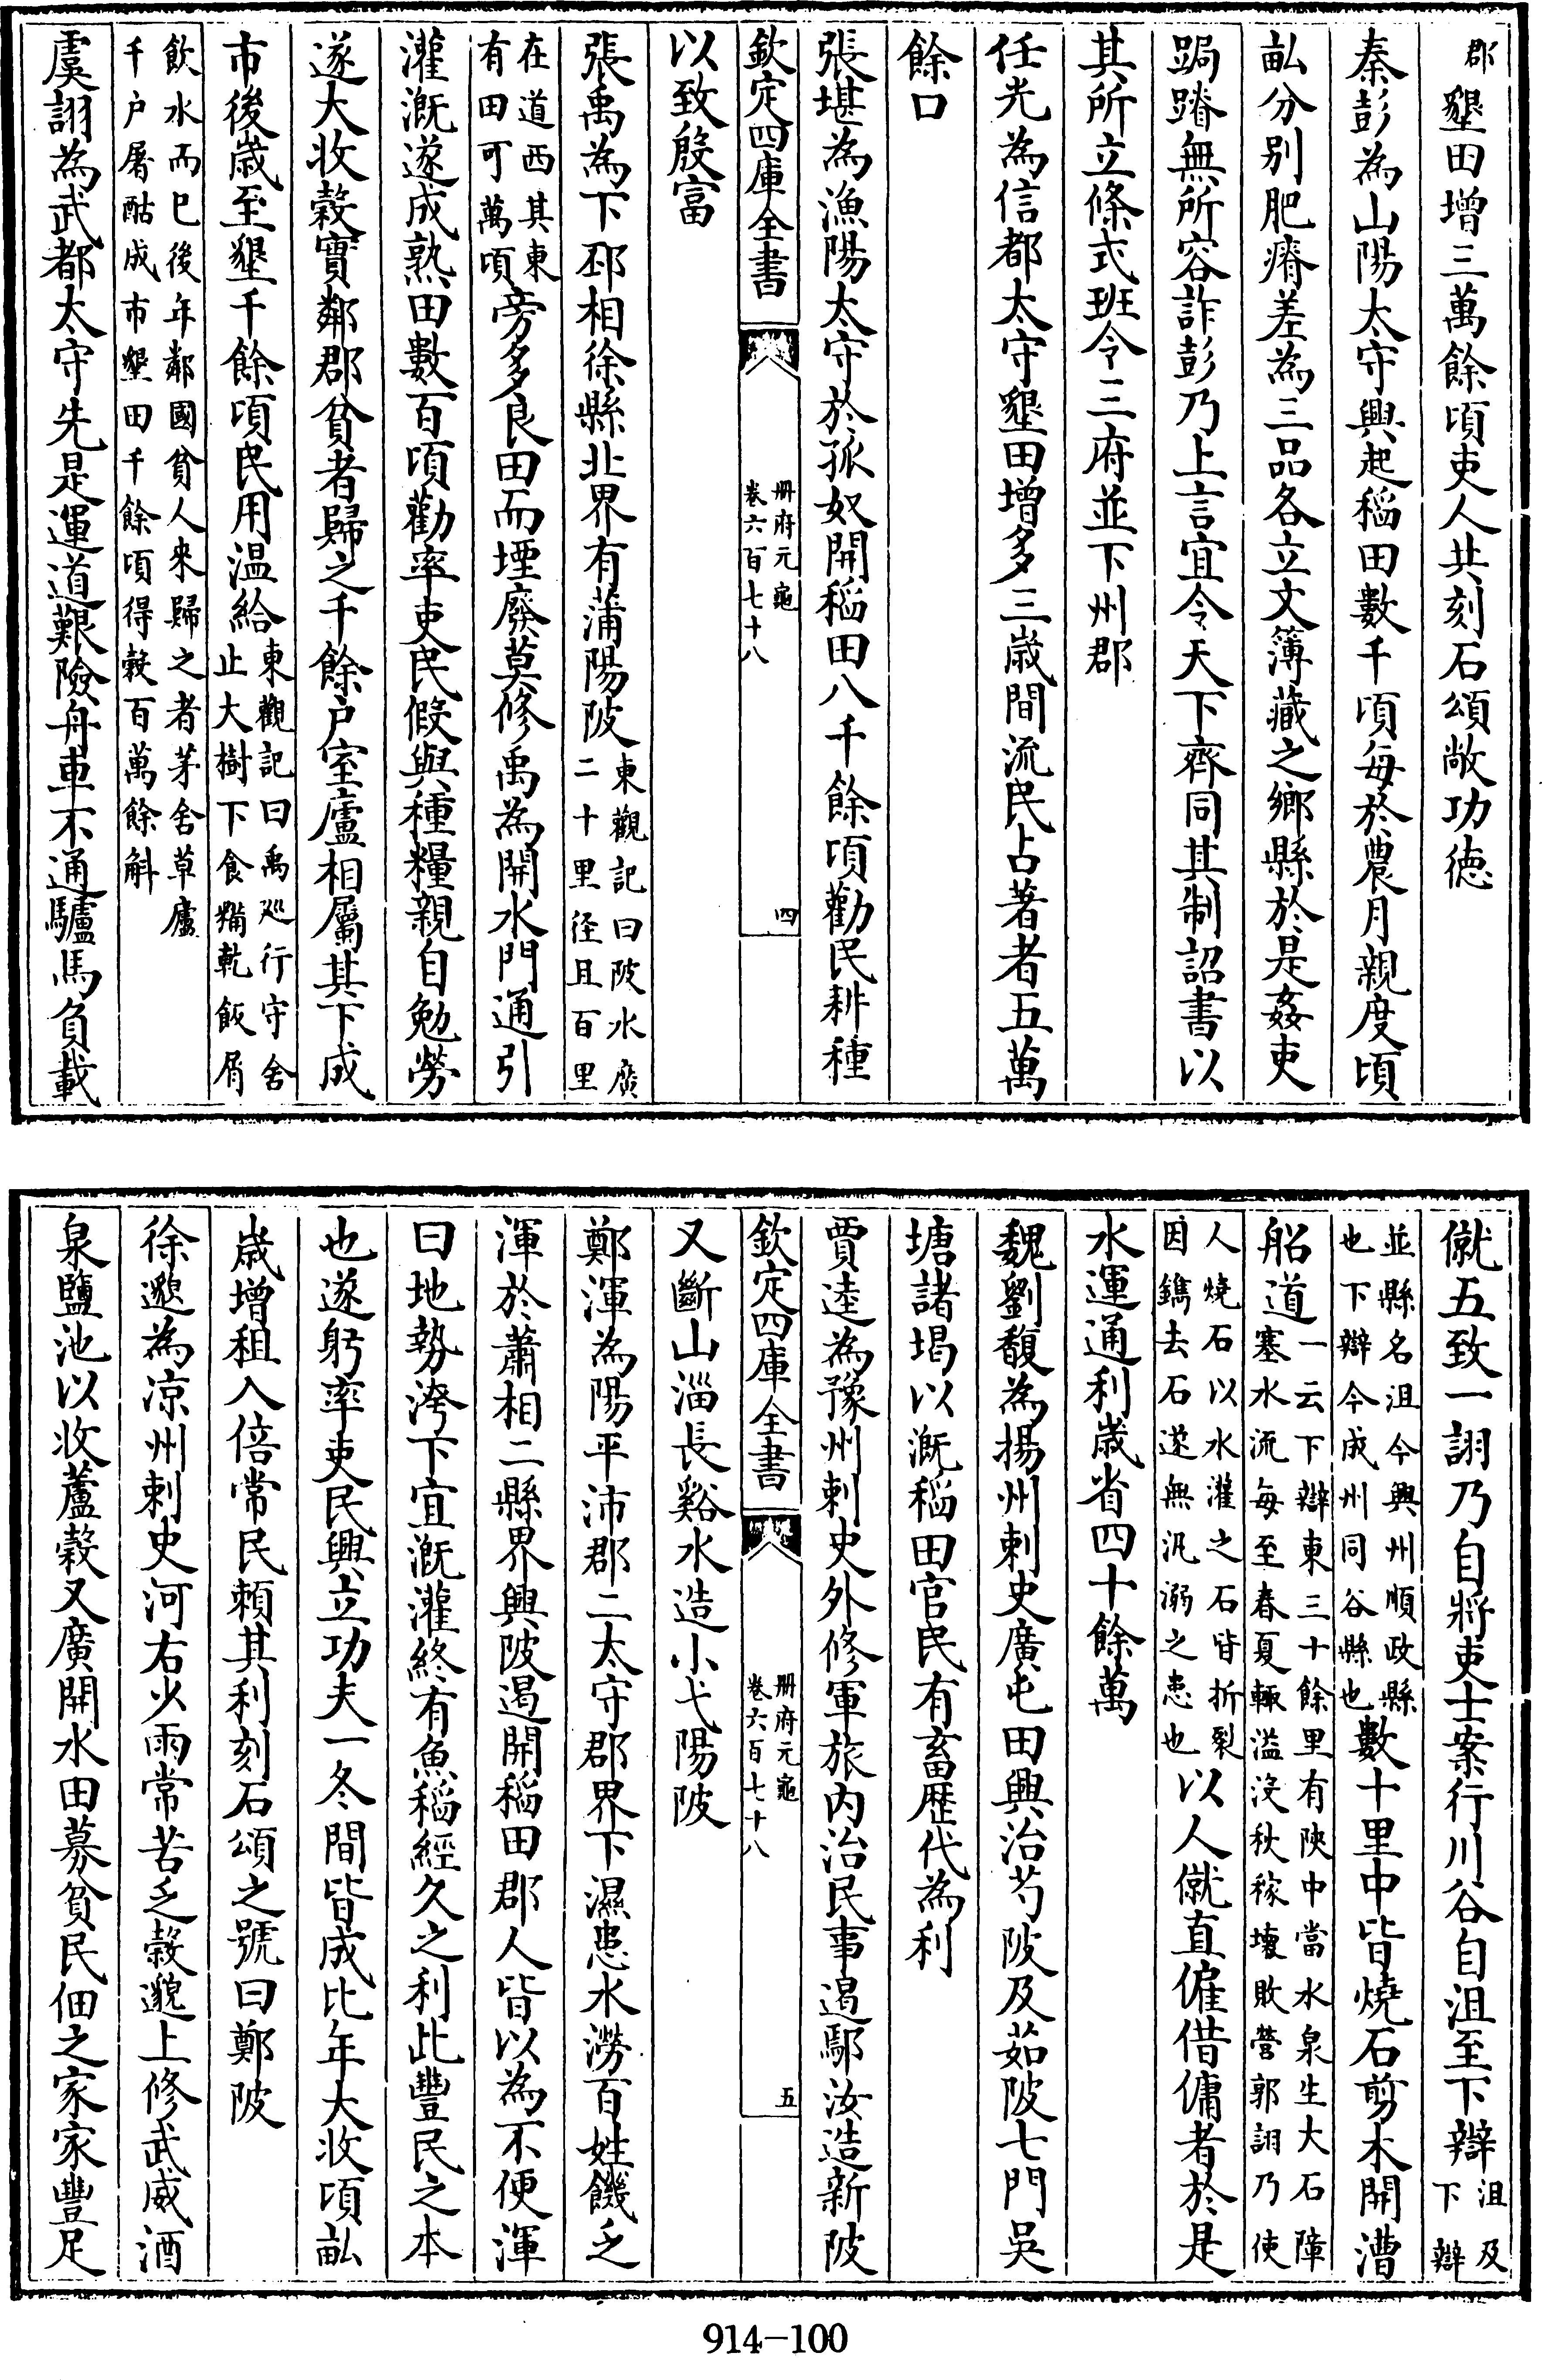 郡墾田增三萬餘頃吏人共刻石頌敞功德
秦彭為山陽太守興起稻田數千頃每於農月親度頃
畝分别肥瘠差為三品各立文簿藏之鄉縣於是姦吏
跼蹐無所容詐彭乃上言宜令天下齊同其制詔書以
其所立條式班令三府並下州郡
任光為信都太守墾田增多三歲間流民占著者五萬
餘口
張堪為漁陽太守於孤奴開稻田八千餘頃勸民耕種
欽定四庫全書
册府元龜
卷六百七十八
四
以致殷富
張禹為下邳相徐縣北界有蒲陽陂東觀記曰陂水廣
二十里徑且百里
在道西其東
有田可萬頃旁多良田而堙廢莫修禹為開水門通引
灌溉遂成熟田數百頃勸率吏民假與種糧親自勉勞
遂大收穀實鄰郡貧者歸之千餘户室廬相屬其下成
市後歲至墾千餘頃民用温給東觀記曰禹廵行守舍
止大樹下食糒乾飯屑
飲水而已後年鄰國貧人來歸之者茅舍草廬
千户屠酤成市墾田千餘頃得穀百萬餘斛
虞詡為武都太守先是運道艱險舟車不通驢馬負載
僦五致一詡乃自將吏士案行川谷自沮至下辯沮及
下辯
並縣名沮今興州順政縣
也下辯今成州同谷縣也數十里中皆燒石剪木開漕
船道一云下辯東三十餘里有陝中當水泉生大石障
塞水流每至春夏輒溢没秋稼壞敗營郭詡乃使
人燒石以水灌之石皆折裂
因鐫去石遂無汎溺之患也以人僦直僱借傭者於是
水運通利歲省四十餘萬
魏劉馥為揚州刺史廣屯田興治芍陂及茹陂七門吳
塘諸堨以溉稻田官民有畜歷代為利
賈逵為豫州刺史外修軍旅内治民事遏鄢汝造新陂
欽定四庫全書
册府元龜
卷六百七十八
五
又斷山淄長谿水造小弋陽陂
鄭渾為陽平沛郡二太守郡界下濕患水澇百姓饑乏
渾於蕭相二縣界興陂遏開稻田郡人皆以為不便渾
曰地勢洿下宜溉灌終有魚稻經久之利此豐民之本
也遂躬率吏民興立功夫一冬間皆成比年大收頃畝
歲增租入倍常民賴其利刻石頌之號曰鄭陂
徐邈為凉州刺史河右少雨常苦乏穀邈上修武威酒
泉鹽池以收蘆穀又廣開水田募貧民佃之家家豐足
914-100